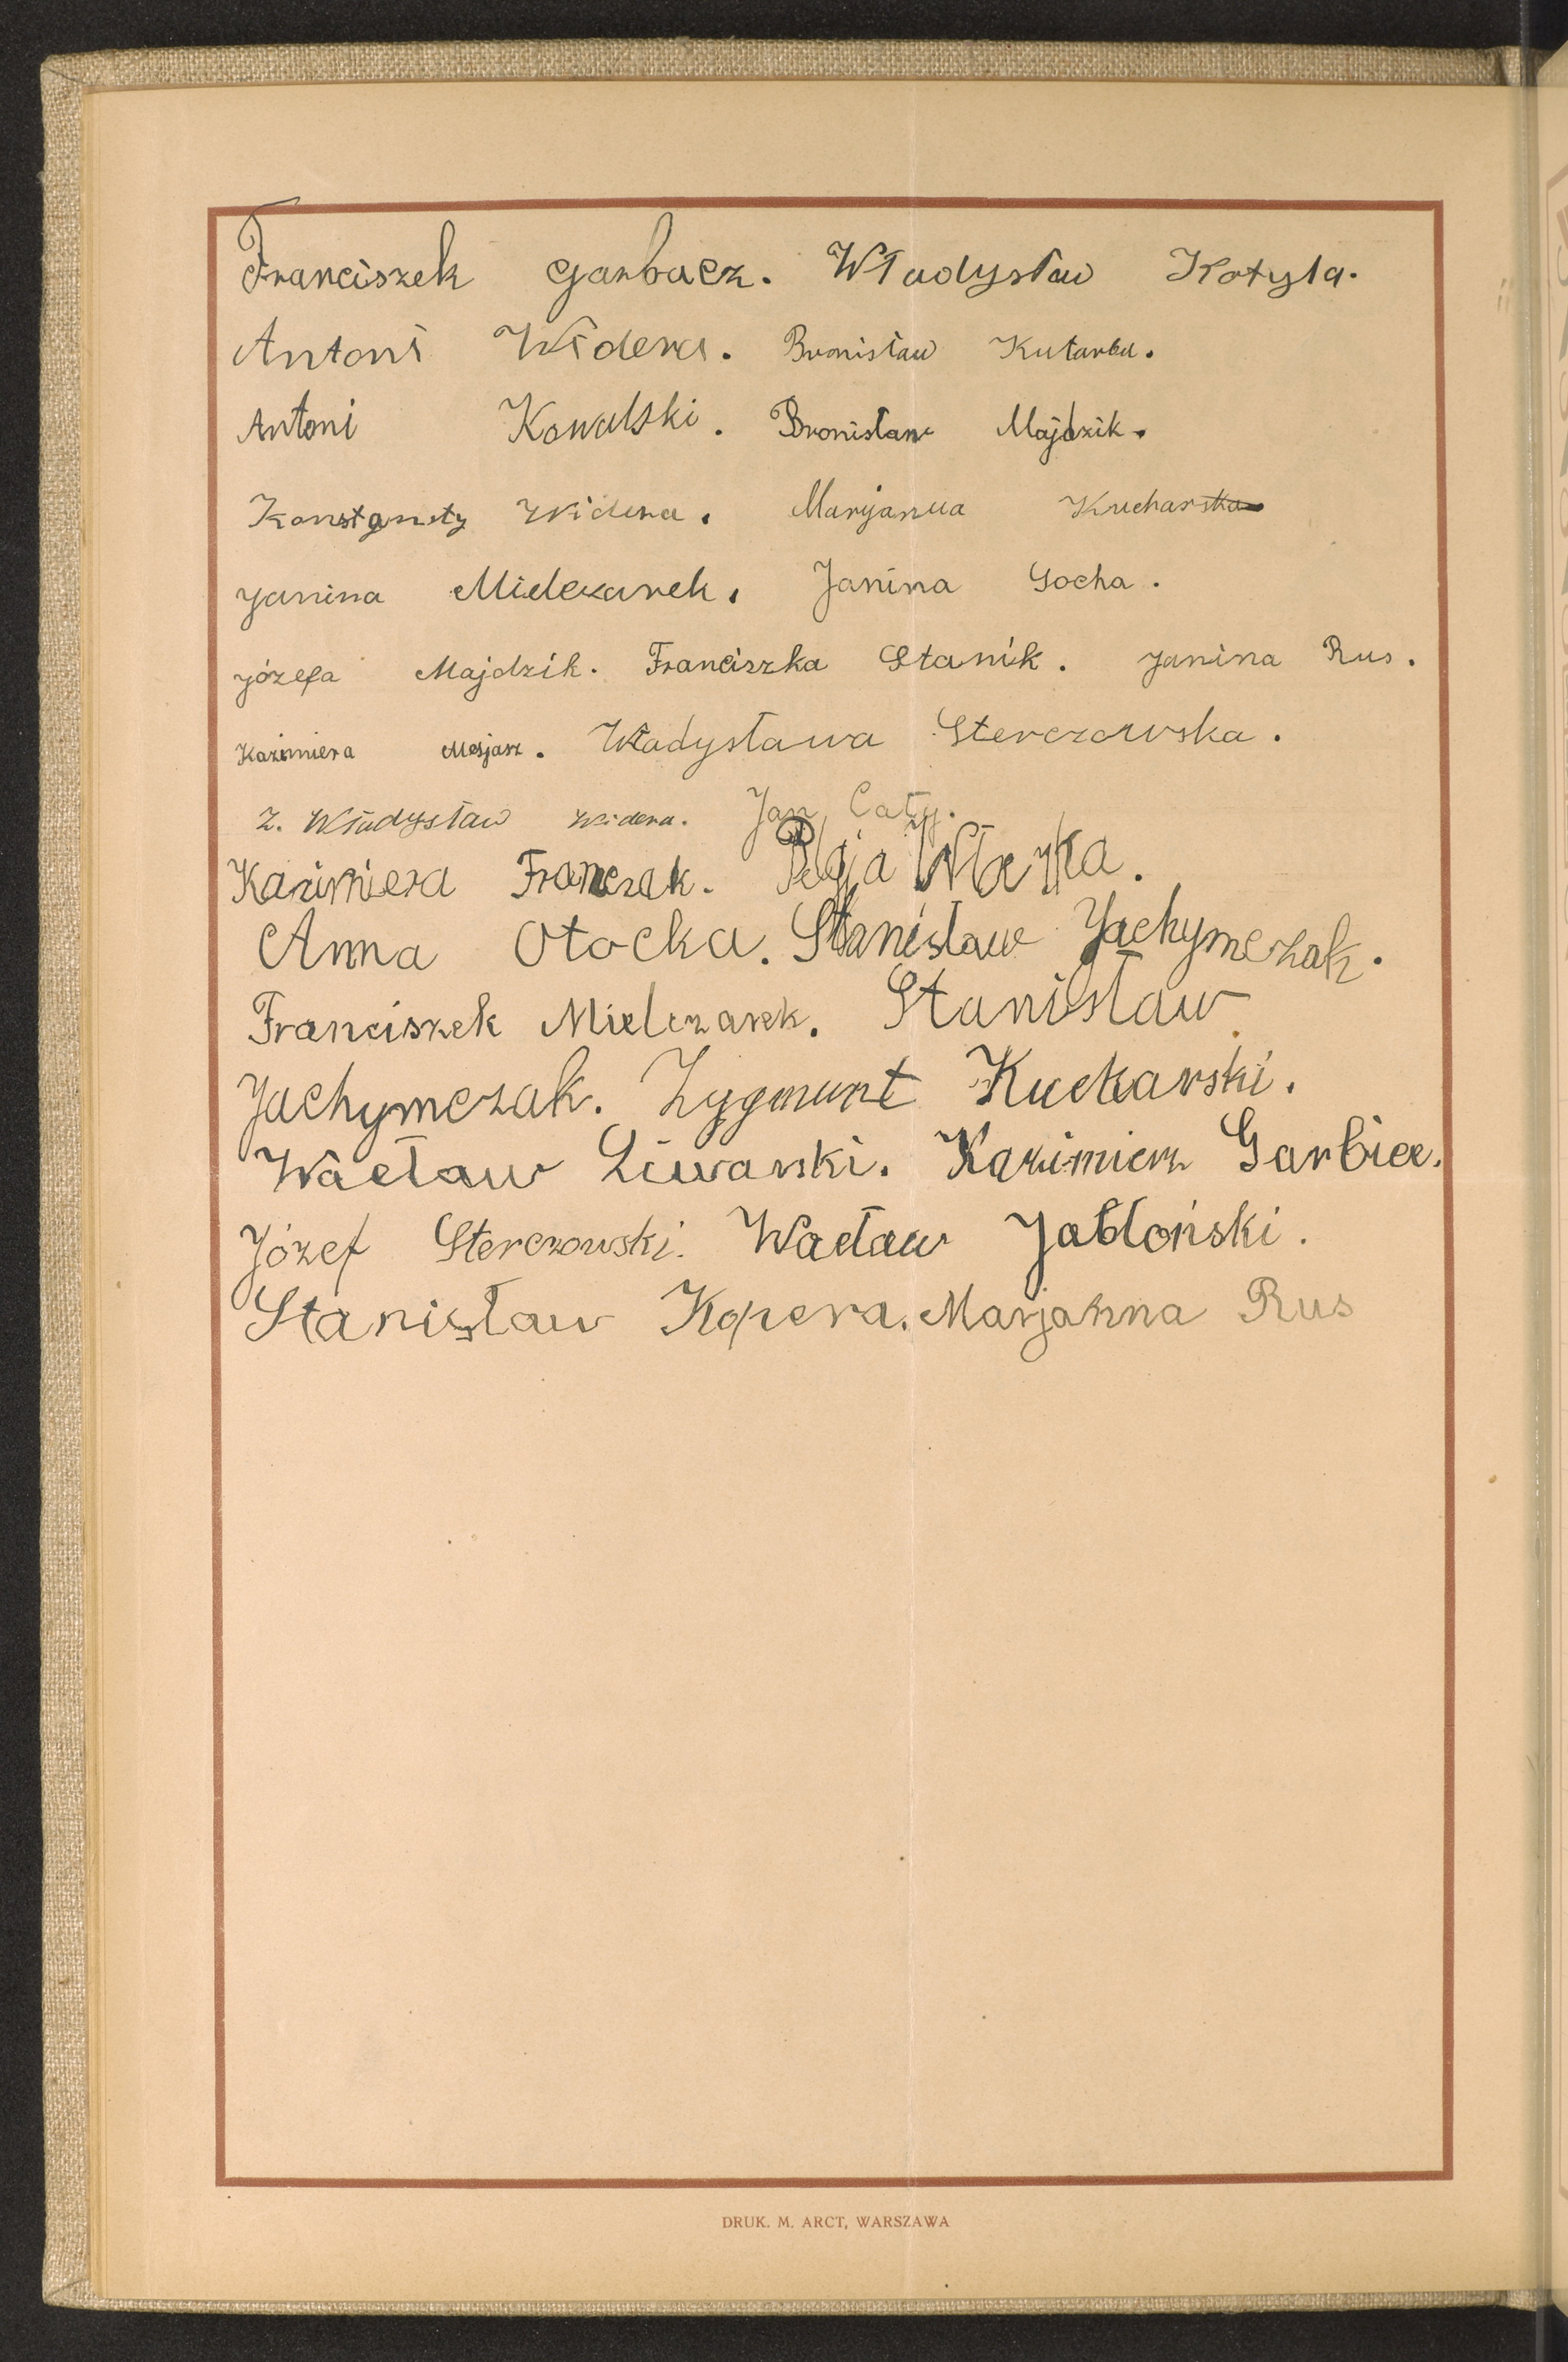 Franciszek Garbacz. Władysław Kotyla.
Antoni Widera. Bronisław Kutarba.
Antoni Kowalski. Bronisław Majdzik.
Konstanty Widera. Marjanna Kucharska
Janina Mielczarek. Janina Socha.
Józefa Majdzik. Franciszka Stanik. Janina Rus.
Kazimiera Mesjasz. Władysława Sterczowska.
Z. Władysław Widera. Jan Cały.
Kazimiera Franczak. Pelagja
Anna Otocka. Stanisław Jachymczak.
Franciszek Mielczarek. Stanisław
Jachymczak. Zygmunt Kucharski.
Wacław Liwarski. Kazimierz Garbiec.
Józef Sterczowski. Wacław Jabłoński.
Stanisław Kopera. Marjanna Rus
DRUK. M. ARCT, WARSZAWA